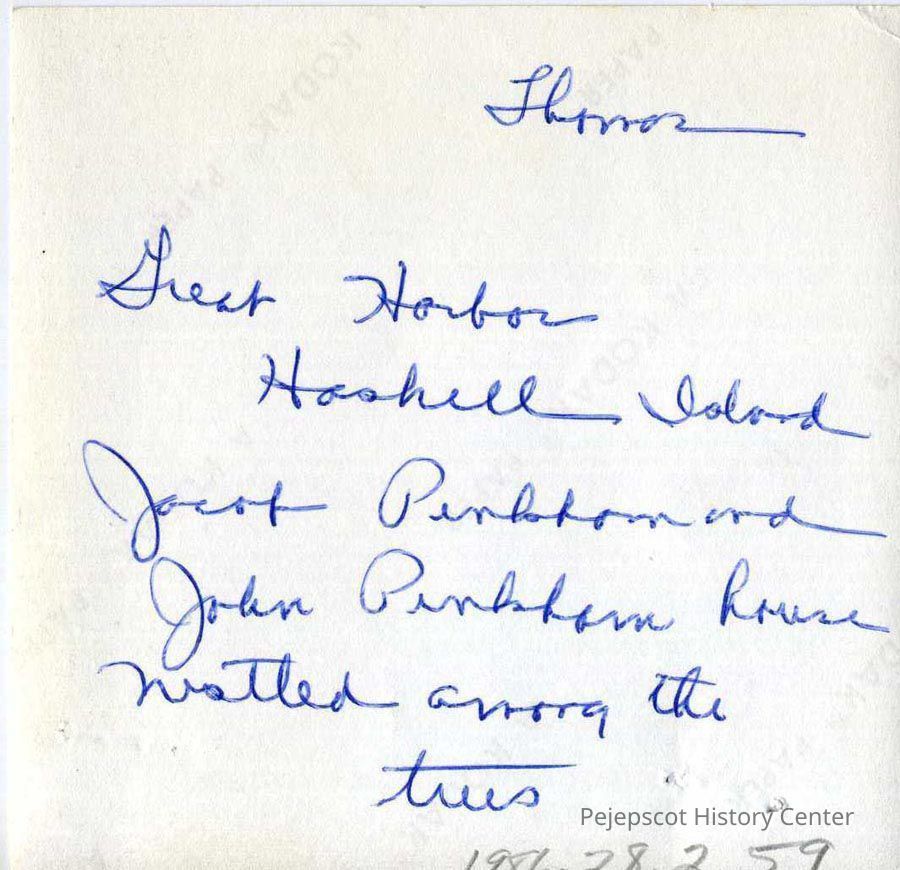 Thomas
Great Harbor
Haskell Island
Jacob Pinkham and
John Pinkham house
nestled among the
trees
Pejepscot History Center
1986.28.2.59